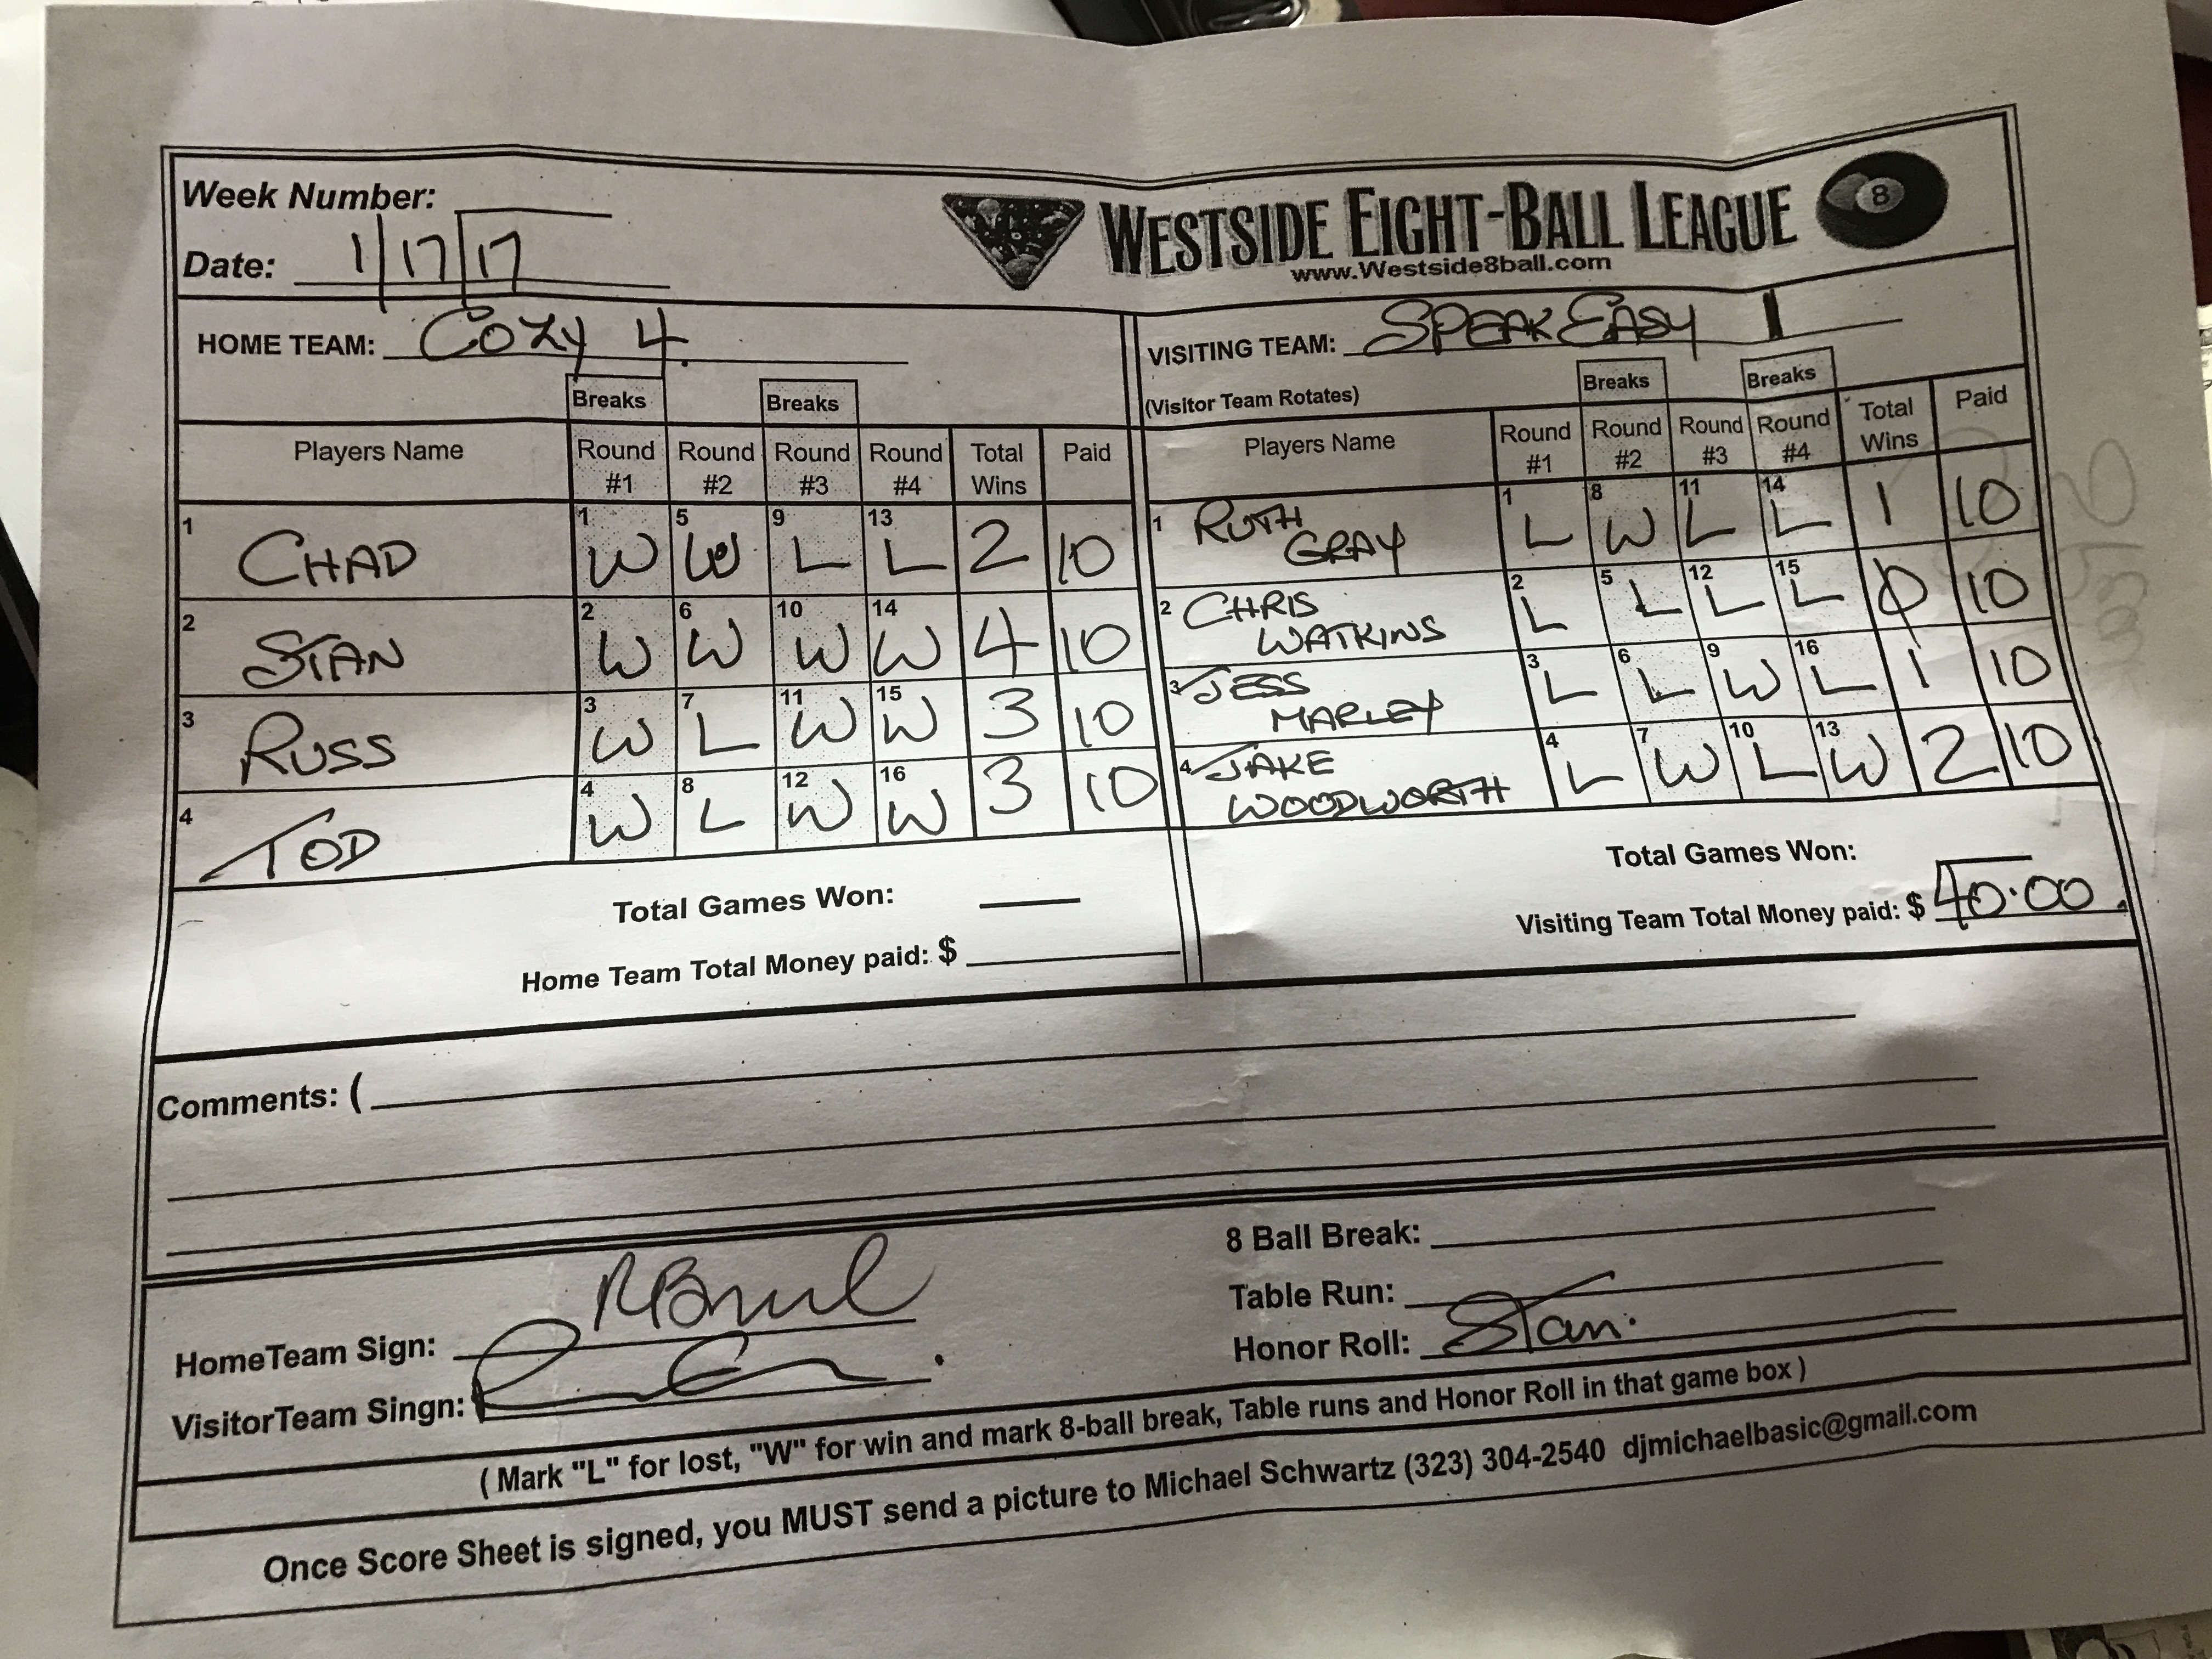 Week Number:
Date: 1/17/17
WESTSIDE EIGHT-BALL LEAGUE
8
www.Westside8ball.com
HOME TEAM: COZY 4.
VISITING TEAM: SPEAK EASY 1
(Visitor Team Rotates)
Breaks Breaks
Breaks Breaks
Players Name Round #1 Round #2 Round #3 Round #4 Total Wins Paid
1 CHAD 1 W 5 W 9 L 13 L 2 10
2 STAN 2 W 6 W 10 W 14 W 4 10
3 RUSS 3 W 7 L 11 W 15 W 3 10
4 TOD 4 W 8 L 12 W 16 W 3 10
Total Games Won:
Home Team Total Money paid: $
Players Name Round #1 Round #2 Round #3 Round #4 Total Wins Paid
1 RUTH GRAY 1 L 8 W 11 L 14 L 1 10
2 CHRIS WATKINS 2 L 5 L 12 L 15 L 0 10
3 JESS MARLEY 3 L 6 L 9 W 16 L 1 10
4 JAKE WOODWORTH 4 L 7 W 10 L 13 W 2 10
Total Games Won:
Visiting Team Total Money paid: $ 40.00
Comments: (
8 Ball Break:
Table Run:
Honor Roll: Stan.
HomeTeam Sign:
VisitorTeam Singn:
( Mark "L" for lost, "W" for win and mark 8-ball break, Table runs and Honor Roll in that game box )
Once Score Sheet is signed, you MUST send a picture to Michael Schwartz (323) 304-2540 djmichaelbasic@gmail.com